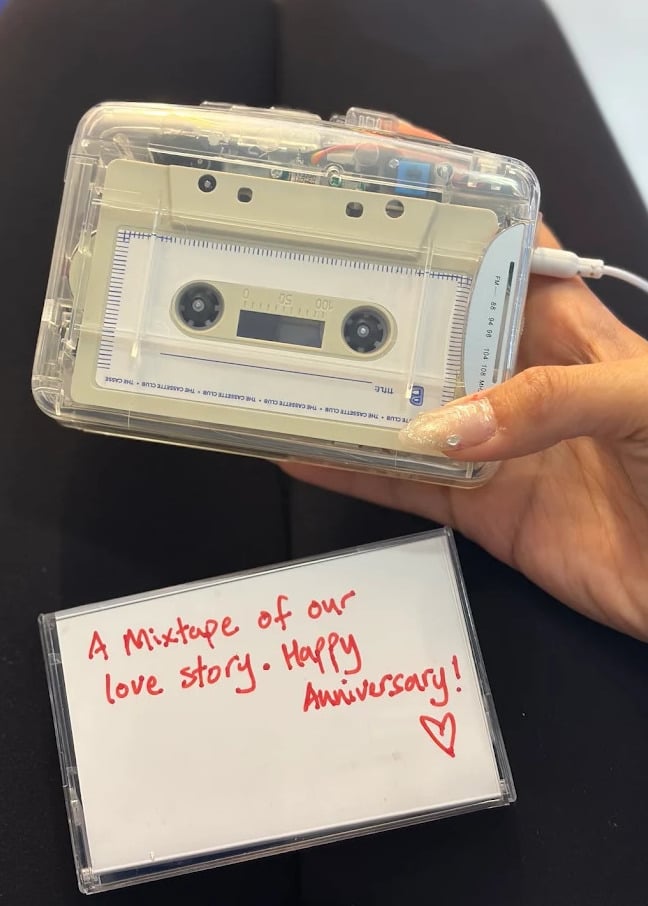 FM 88 94 98 104 108 MHz
0 50 100
TITLE:
THE CASSETTE CLUB • THE CASSETTE CLUB • THE CASSETTE CLUB • THE CASSE
A Mixtape of our
love story. Happy
Anniversary!